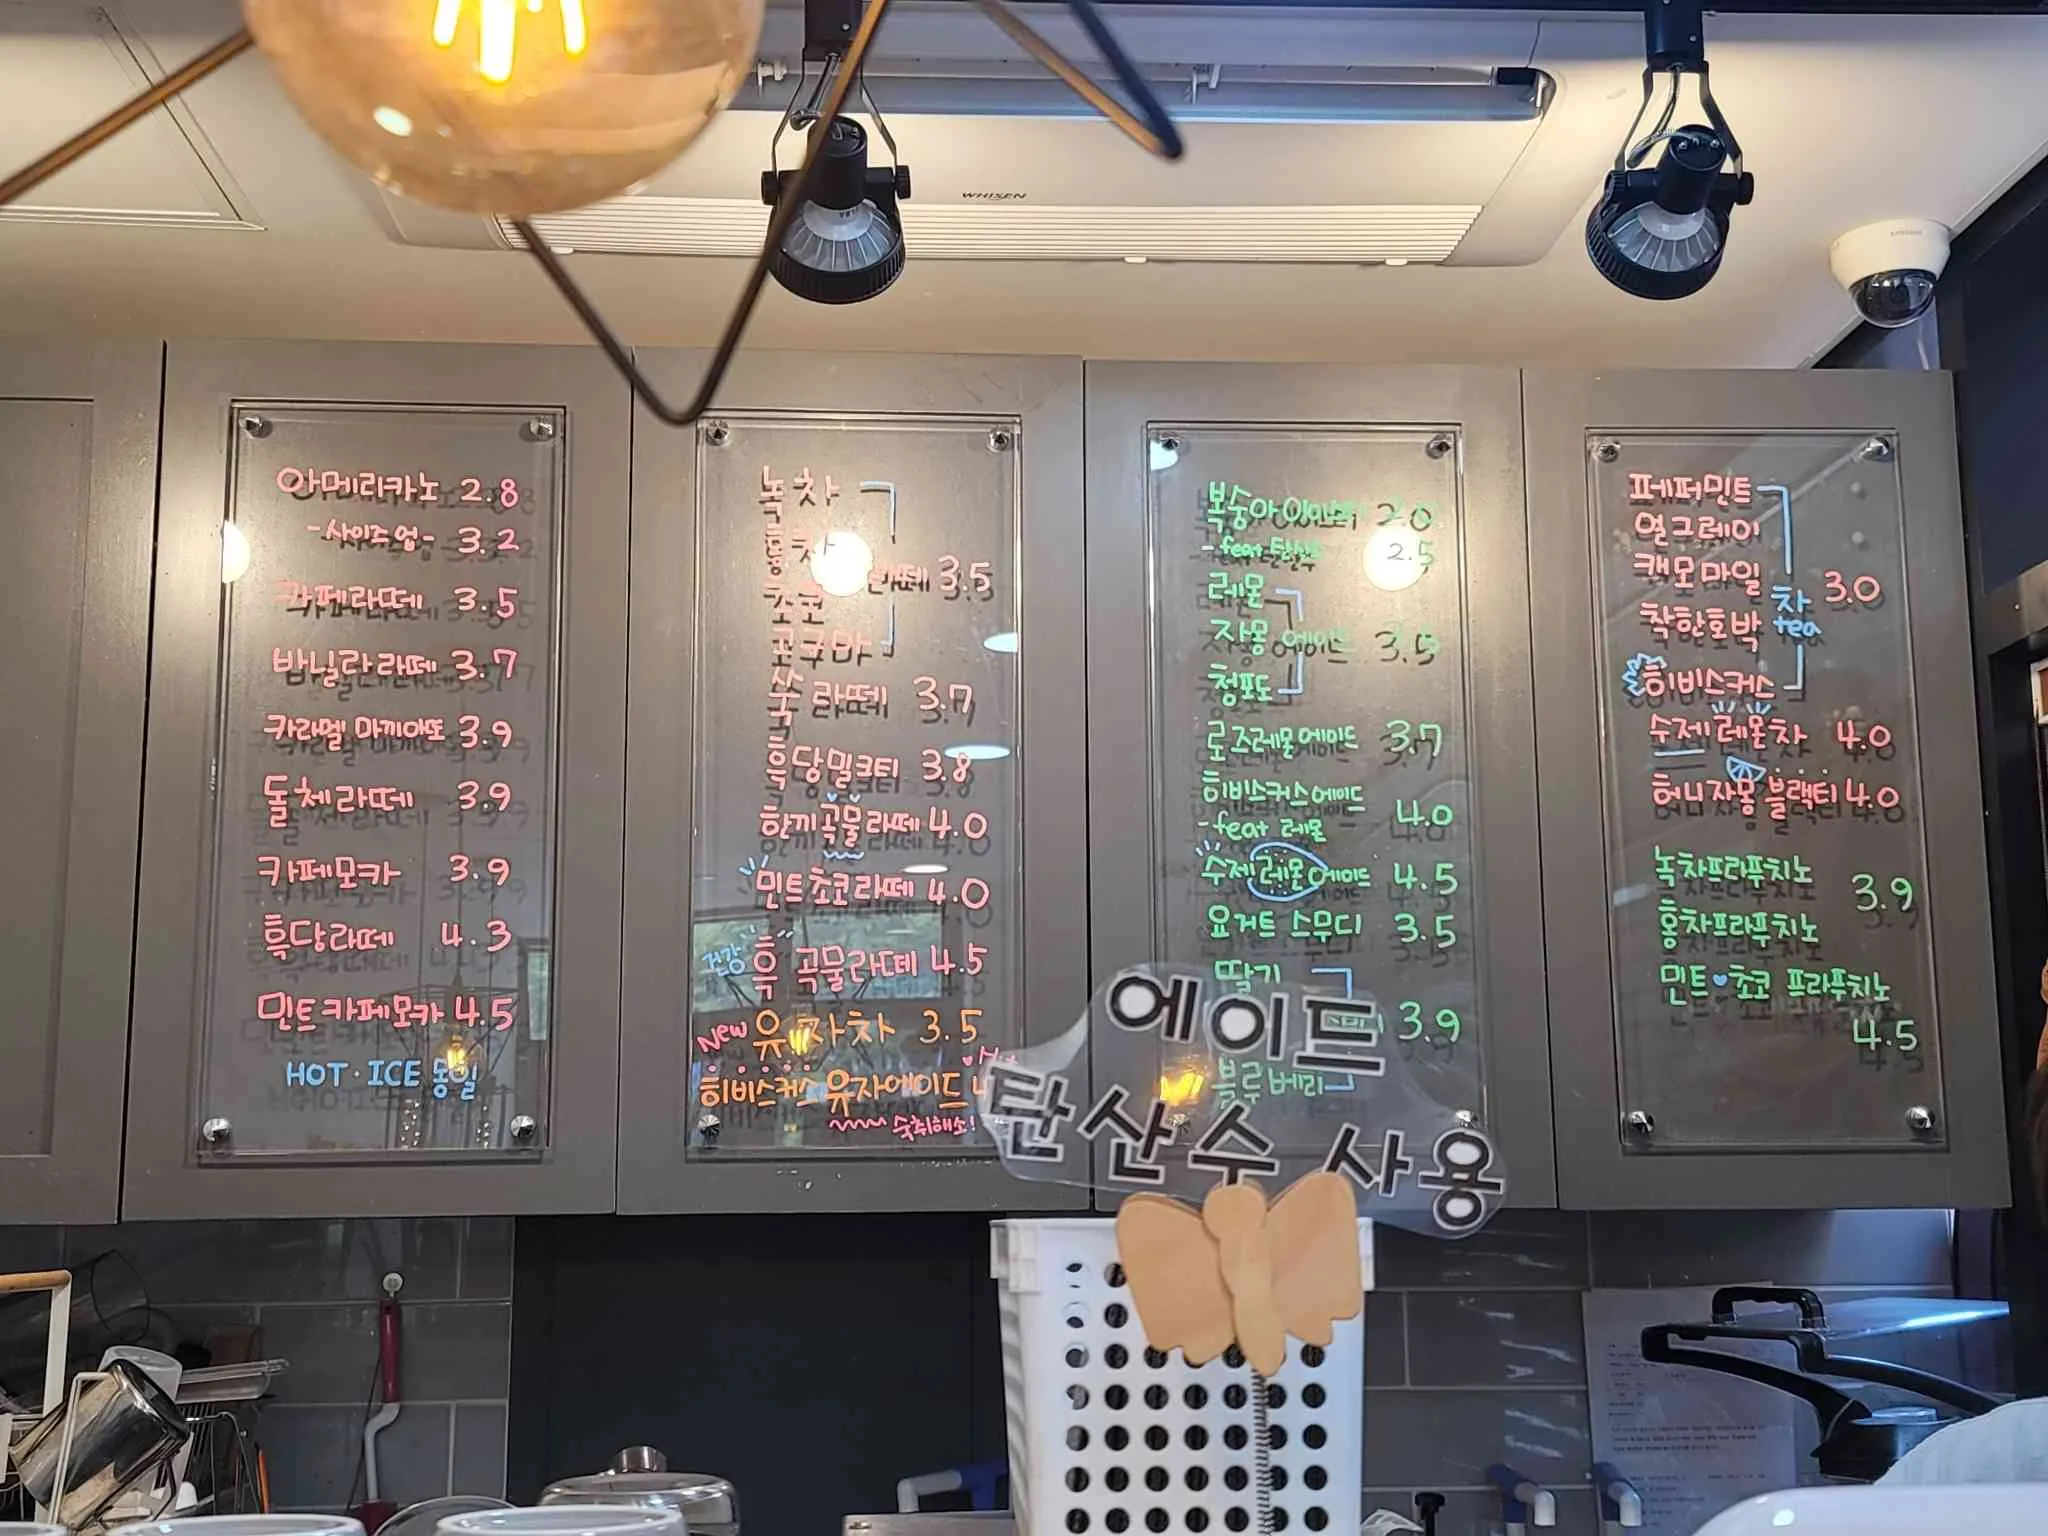 WHISEN
아메리카노 2.8
-사이즈업- 3.2
카페라떼 3.5
바닐라라떼 3.7
카라멜 마끼아또 3.9
돌체라떼 3.9
카페모카 3.9
흑당라떼 4.3
민트카페모카 4.5
HOT·ICE 동일
녹차
홍차
초코
라떼 3.5
고구마
쑥 라떼 3.7
흑당밀크티 3.8
한끼곡물라떼 4.0
민트초코라떼 4.0
건강 흑 곡물라떼 4.5
New 유자차 3.5
히비스커스유자에이드
숙취해소!
복숭아 아이스티 2.0
-feat 탄산수 2.5
레몬
자몽 에이드 3.5
청포도
로즈레몬에이드 3.7
히비스커스에이드 4.0
-feat 레몬
수제레몬에이드 4.5
요거트 스무디 3.5
딸기
3.9
블루베리
페퍼민트
얼그레이
캐모마일
차 3.0
착한호박 tea
히비스커스
수제레몬차 4.0
허니자몽블랙티 4.0
녹차프라푸치노
3.9
홍차프라푸치노
민트 초코 프라푸치노
4.5
에이드
탄산수 사용